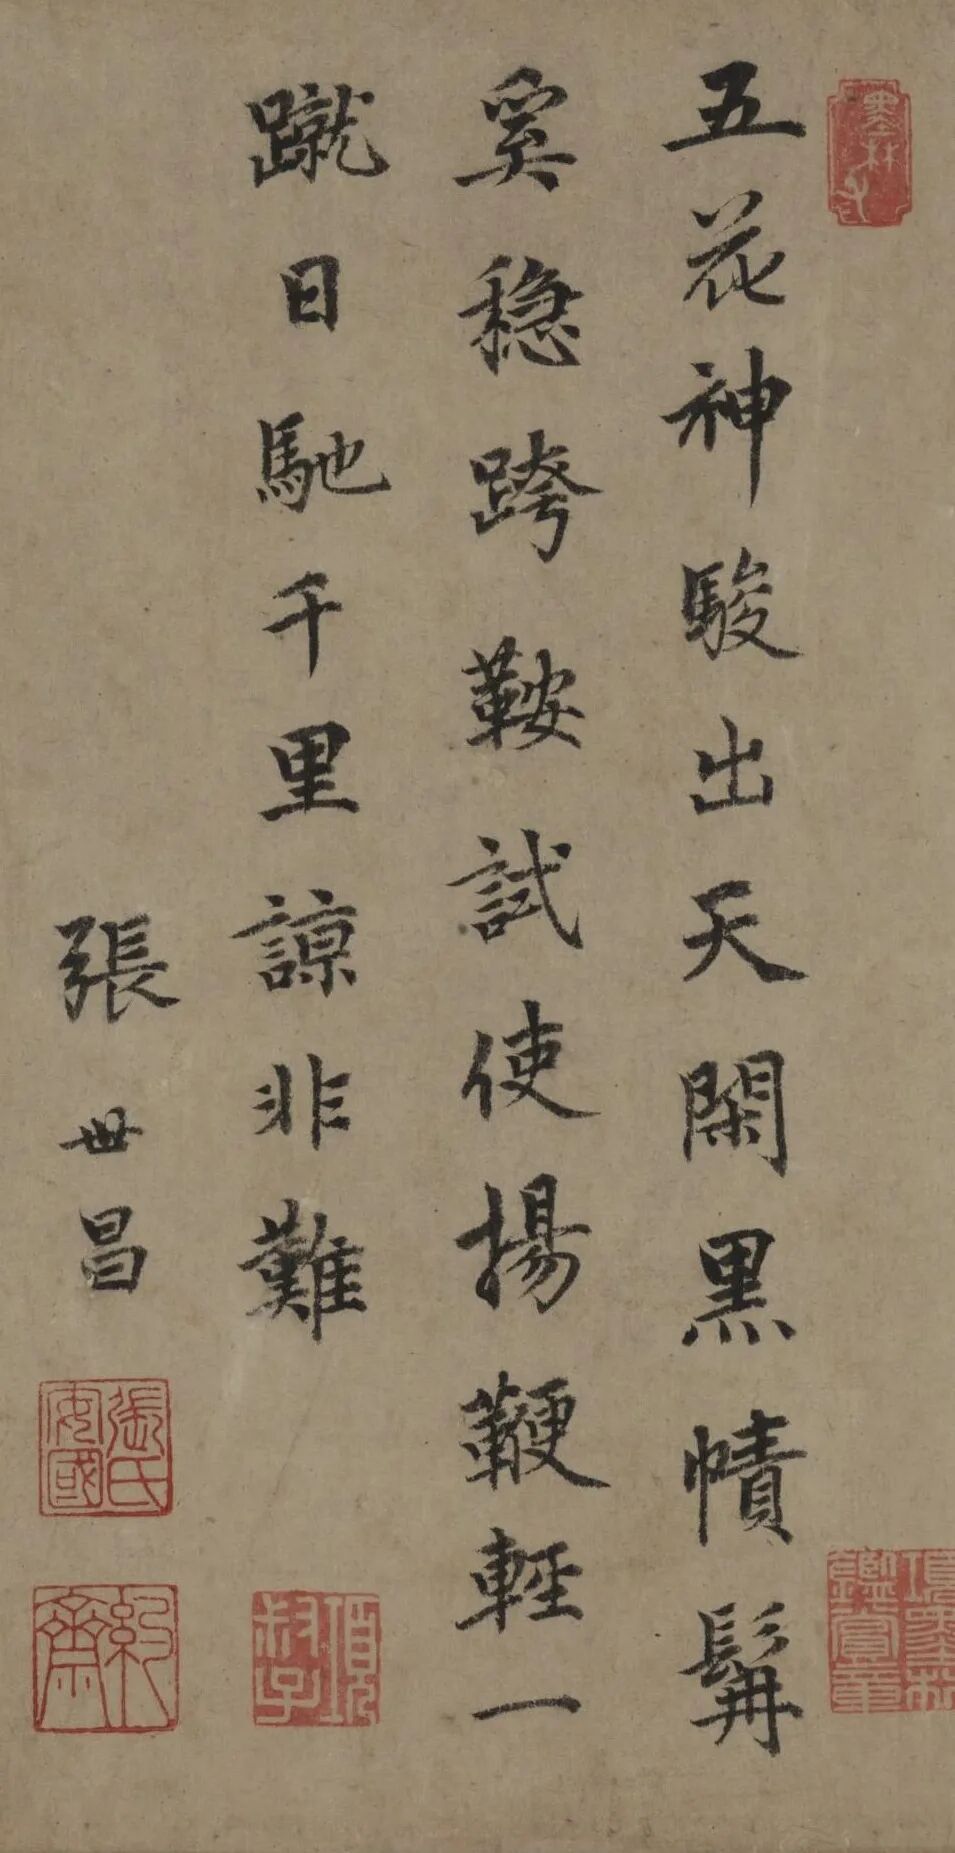 五花神駿出天閑黑幘髯
奚穩跨鞍試使揚鞭輕一
蹴日馳千里諒非難
張世昌
張氏安國
約齋
項叔子
墨林
項墨林鑑賞章